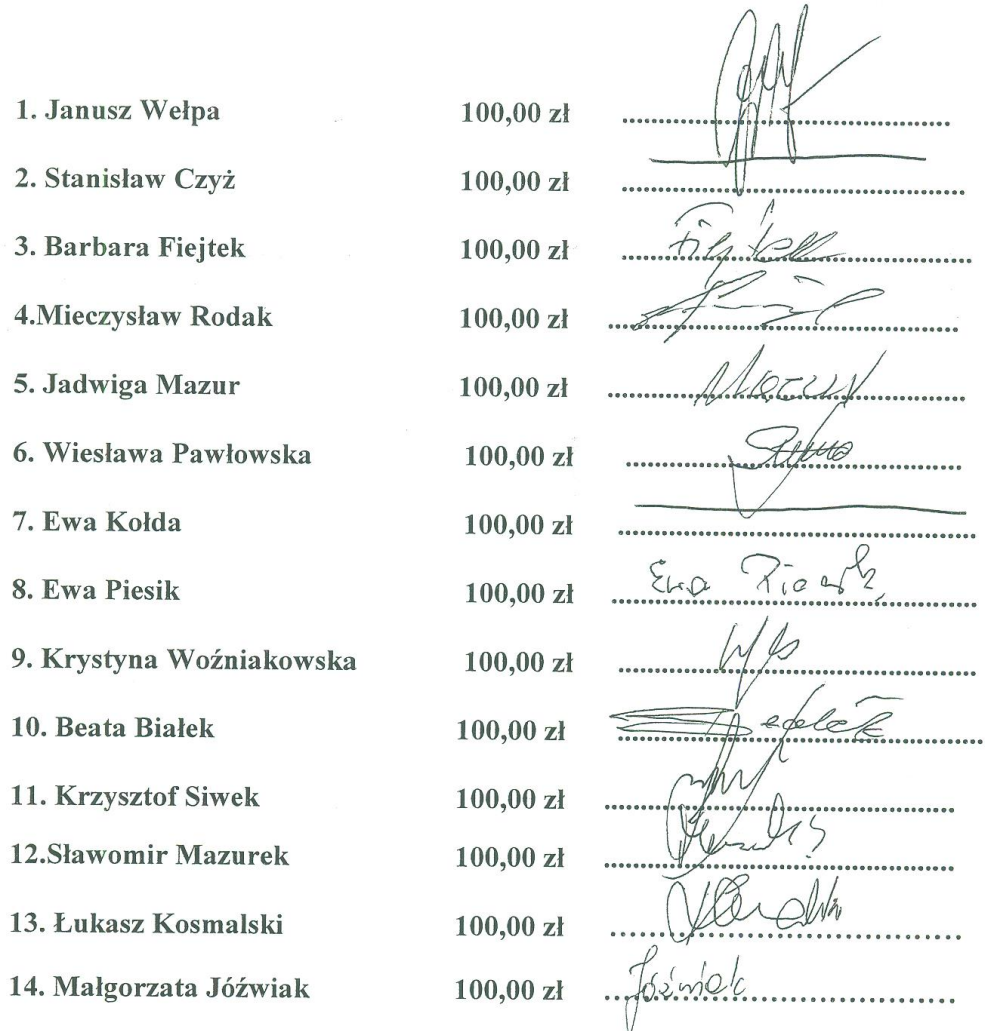 1. Janusz Wełpa 100,00 zł ....................
2. Stanisław Czyż 100,00 zł ....................
3. Barbara Fiejtek 100,00 zł .................... Fiejtek
4.Mieczysław Rodak 100,00 zł ....................
5. Jadwiga Mazur 100,00 zł .................... Mazur
6. Wiesława Pawłowska 100,00 zł ....................
7. Ewa Kołda 100,00 zł ....................
8. Ewa Piesik 100,00 zł .................... Ewa Piesik
9. Krystyna Woźniakowska 100,00 zł ....................
10. Beata Białek 100,00 zł ....................
11. Krzysztof Siwek 100,00 zł ....................
12.Sławomir Mazurek 100,00 zł ....................
13. Łukasz Kosmalski 100,00 zł ....................
14. Małgorzata Jóźwiak 100,00 zł .................... Jóźwiak